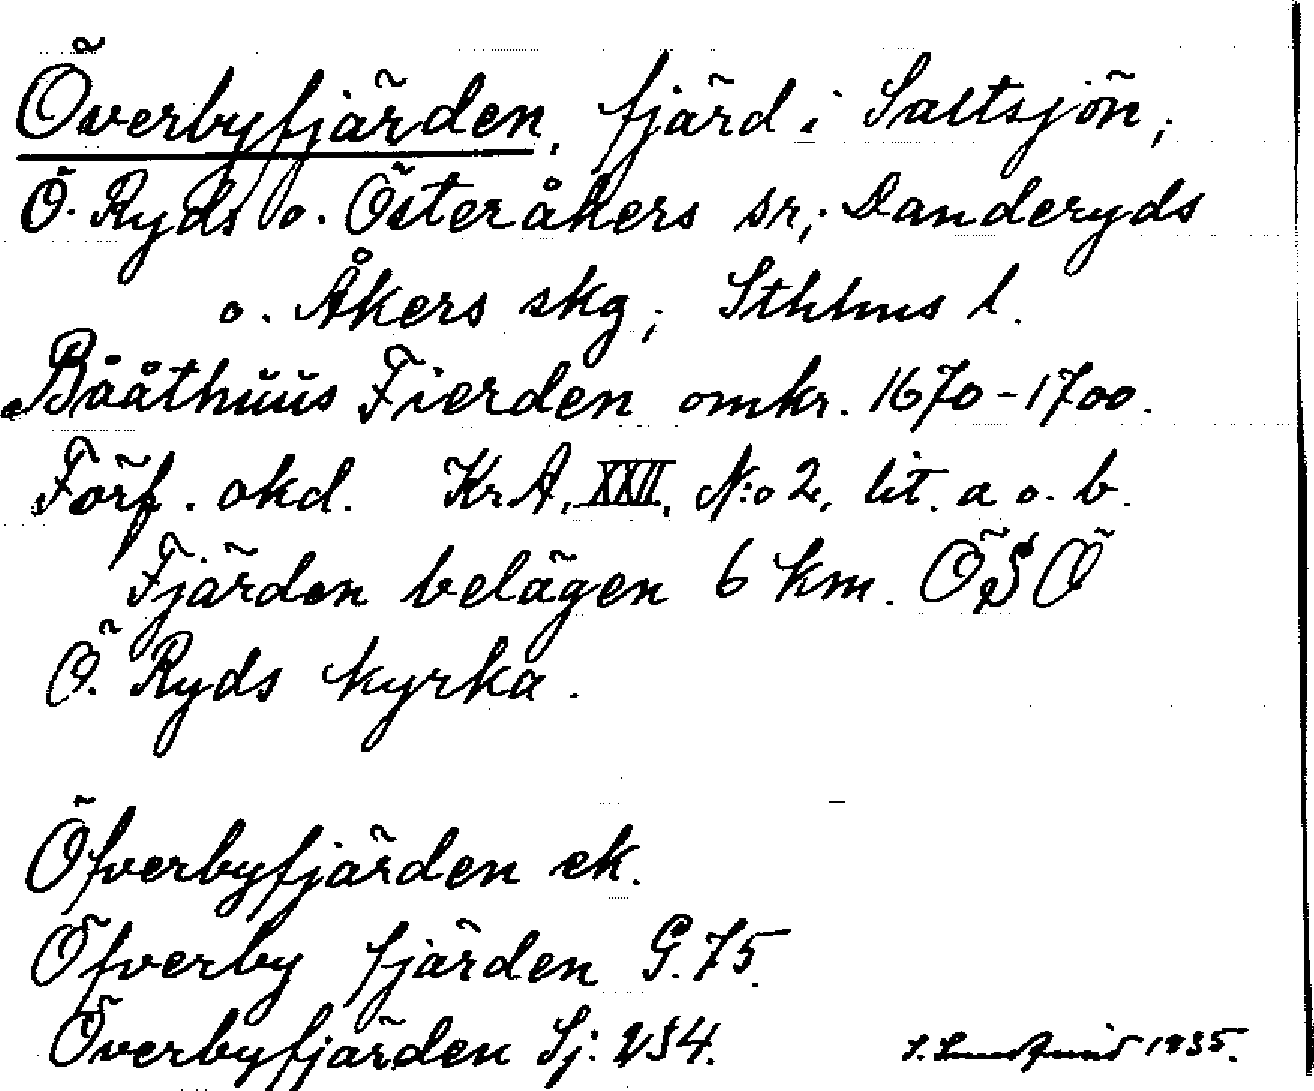 Överbyfjärden, fjärd i Saltsjön;
Ö. Ryds o. Österåkers sr; Danderyds
o. Åkers skg; Sthlms l.
Bååthŭŭs Fierden omkr. 1670-1700.
Förf. okd. Kr.A. XXII, N:o 2, lit. a o. b.
Fjärden belägen 6 km. ÖSÖ
Ö. Ryds kyrka.
Öfverbyfjärden ek.
Öfverby fjärden G. 75.
Överbyfjärden Sj: 234.
1935.